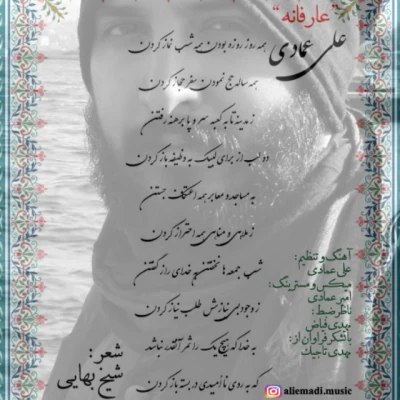 "عارفانه"
علی عمادی
همه روز روزه بودن همه شب نماز کردن
همه ساله حج نمودن سفر حجاز کردن
ز مدینه تا به کعبه سر و پا برهنه رفتن
دو لب از برای لبیک به وظیفه باز کردن
به مساجد و معابر همه اعتکاف جستن
ز ملاهی و مناهی همه احتراز کردن
شب جمعه ها نخفتن به خدای راز گفتن
ز وجود بی نیازش طلب نیاز کردن
به خدا که هیچ یک را ثمر آنقدر نباشد
که به روی نا امیدی در بسته باز کردن
آهنگ و تنظیم:
علی عمادی
میکس و مسترینگ:
امیر عمادی
ناظر ضبط:
مهدی فیاض
با تشکر فراوان از:
مهدی تاجیک
شعر:
شیخ بهایی
aliemadi.music